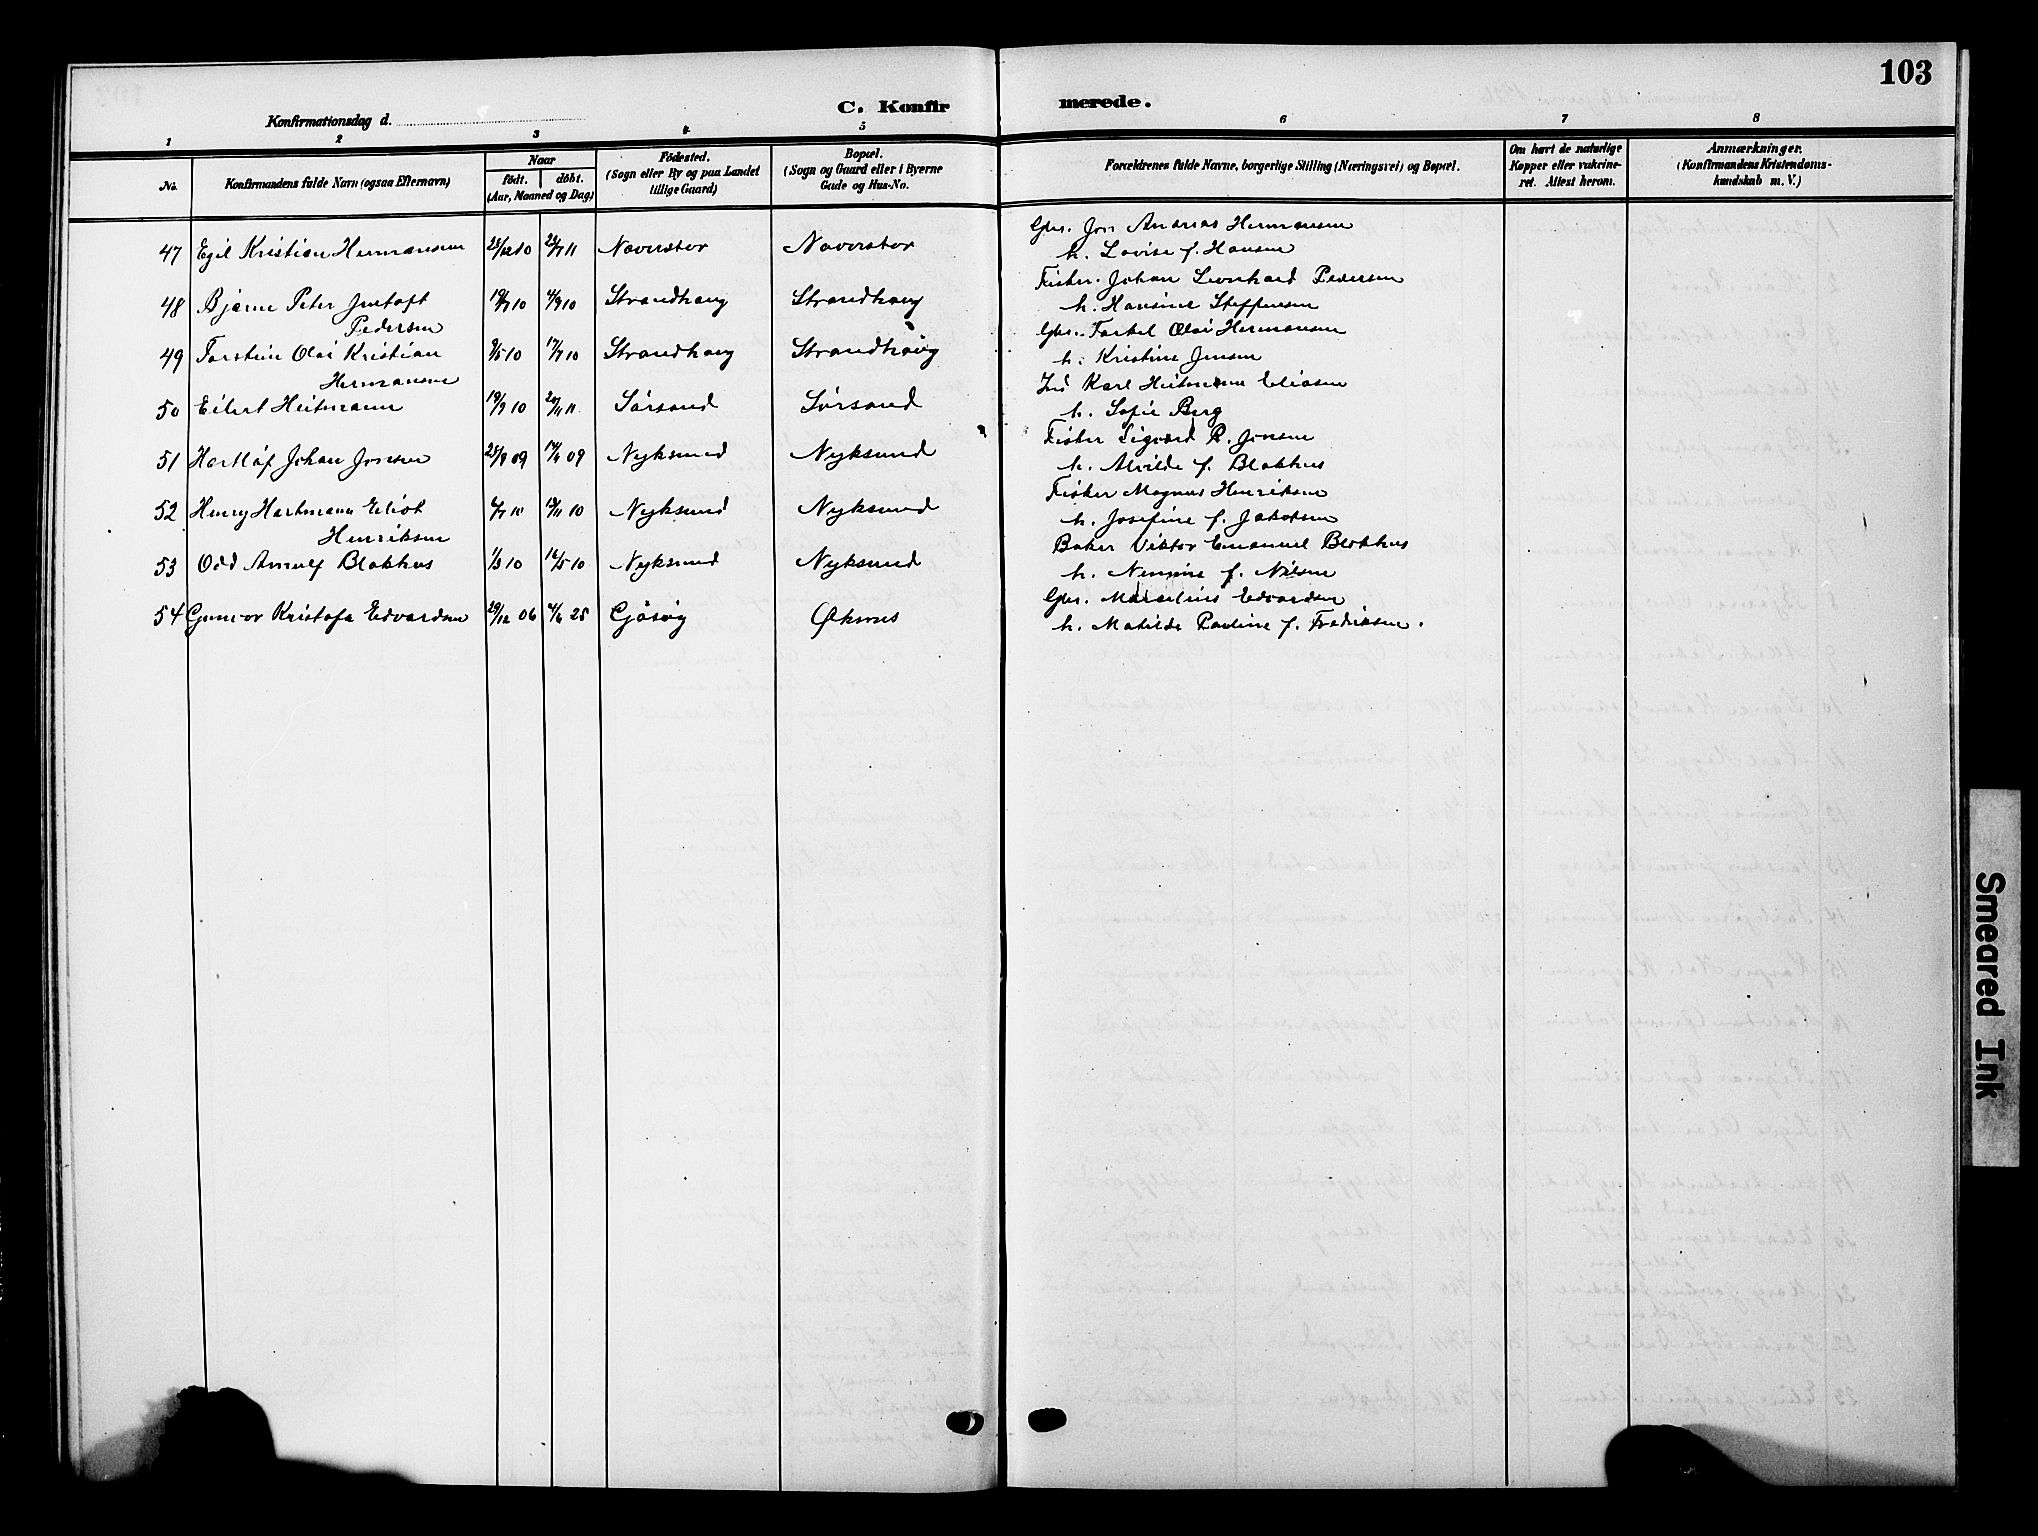 103
C. Konfirmerede.
Konfirmationsdag d.
1 2 3 4 5 6 7 8
No. Konfirmandens fulde Navn (ogsaa Efternavn) Naar født. døbt. (Aar, Maaned og Dag) Fødested. (Sogn eller By og paa Landet tillige Gaard) Bopæl. (Sogn og Gaard eller i Byerne Gade og Hus-No. Forældrenes fulde Navne, borgerlige Stilling (Næringsvei) og Bopæl. Om havt de naturlige Kopper eller vakcineret. Attest herom. Anmærkninger. (Konfirmandens Kristendomskundskab m. V.)
47 Egil Kristian Hermansen Naverstor Naverstor Gbr. Jon Andreas Hermansen
h. Lovise f. Hansen
48 Bjarne Peter Justoft 4/9 10 Strandhaug Strandhaug Fisker. Johan Leonhard Pedersen
Pedersen h. Hansine Steffensen
49 Torstein Olai Kristian 17/7 10 Strandhaug Strandhaug Gbr. Torkel Olai Hermansen
Hermansen h. Kristine Jensen
50 Eilert Heitmann 19/9 10 Sørsand Sørsand Karl Heitmann Eliasen
h. Sofie Berg
51 Hartlof Johan Jonsen Nyksund Nyksund Fisker Sigvard P. Jonsen
h. Alvilde f. Blokhus
52 Henry Hartmann Eliot Nyksund Nyksund Fisker Magnus Henriksen
Henriksen h. Josefine f. Jakobsen
53 Odd Arnulf Blokhus 1/3 10 16/5 10 Nyksund Nyksund Baker Viktor Emanuel Blokhus
h. f. Nilsen
54 Gunvor Kristofa Edvardsen 29/12 06 4/6 25 Gjøsvig Øksnes Gbr. Marselius Edvardsen
h. Matilde Pauline f. Fredriksen.
Smeared Ink